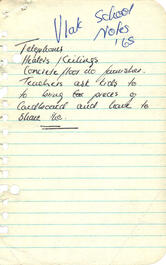 Vlak School
Notes
'65
Telephones
Heaters / Ceilings
Concrete floor no furnisher.
Teachers ask kids to
to bring pieces of
Cardboard and have to
share